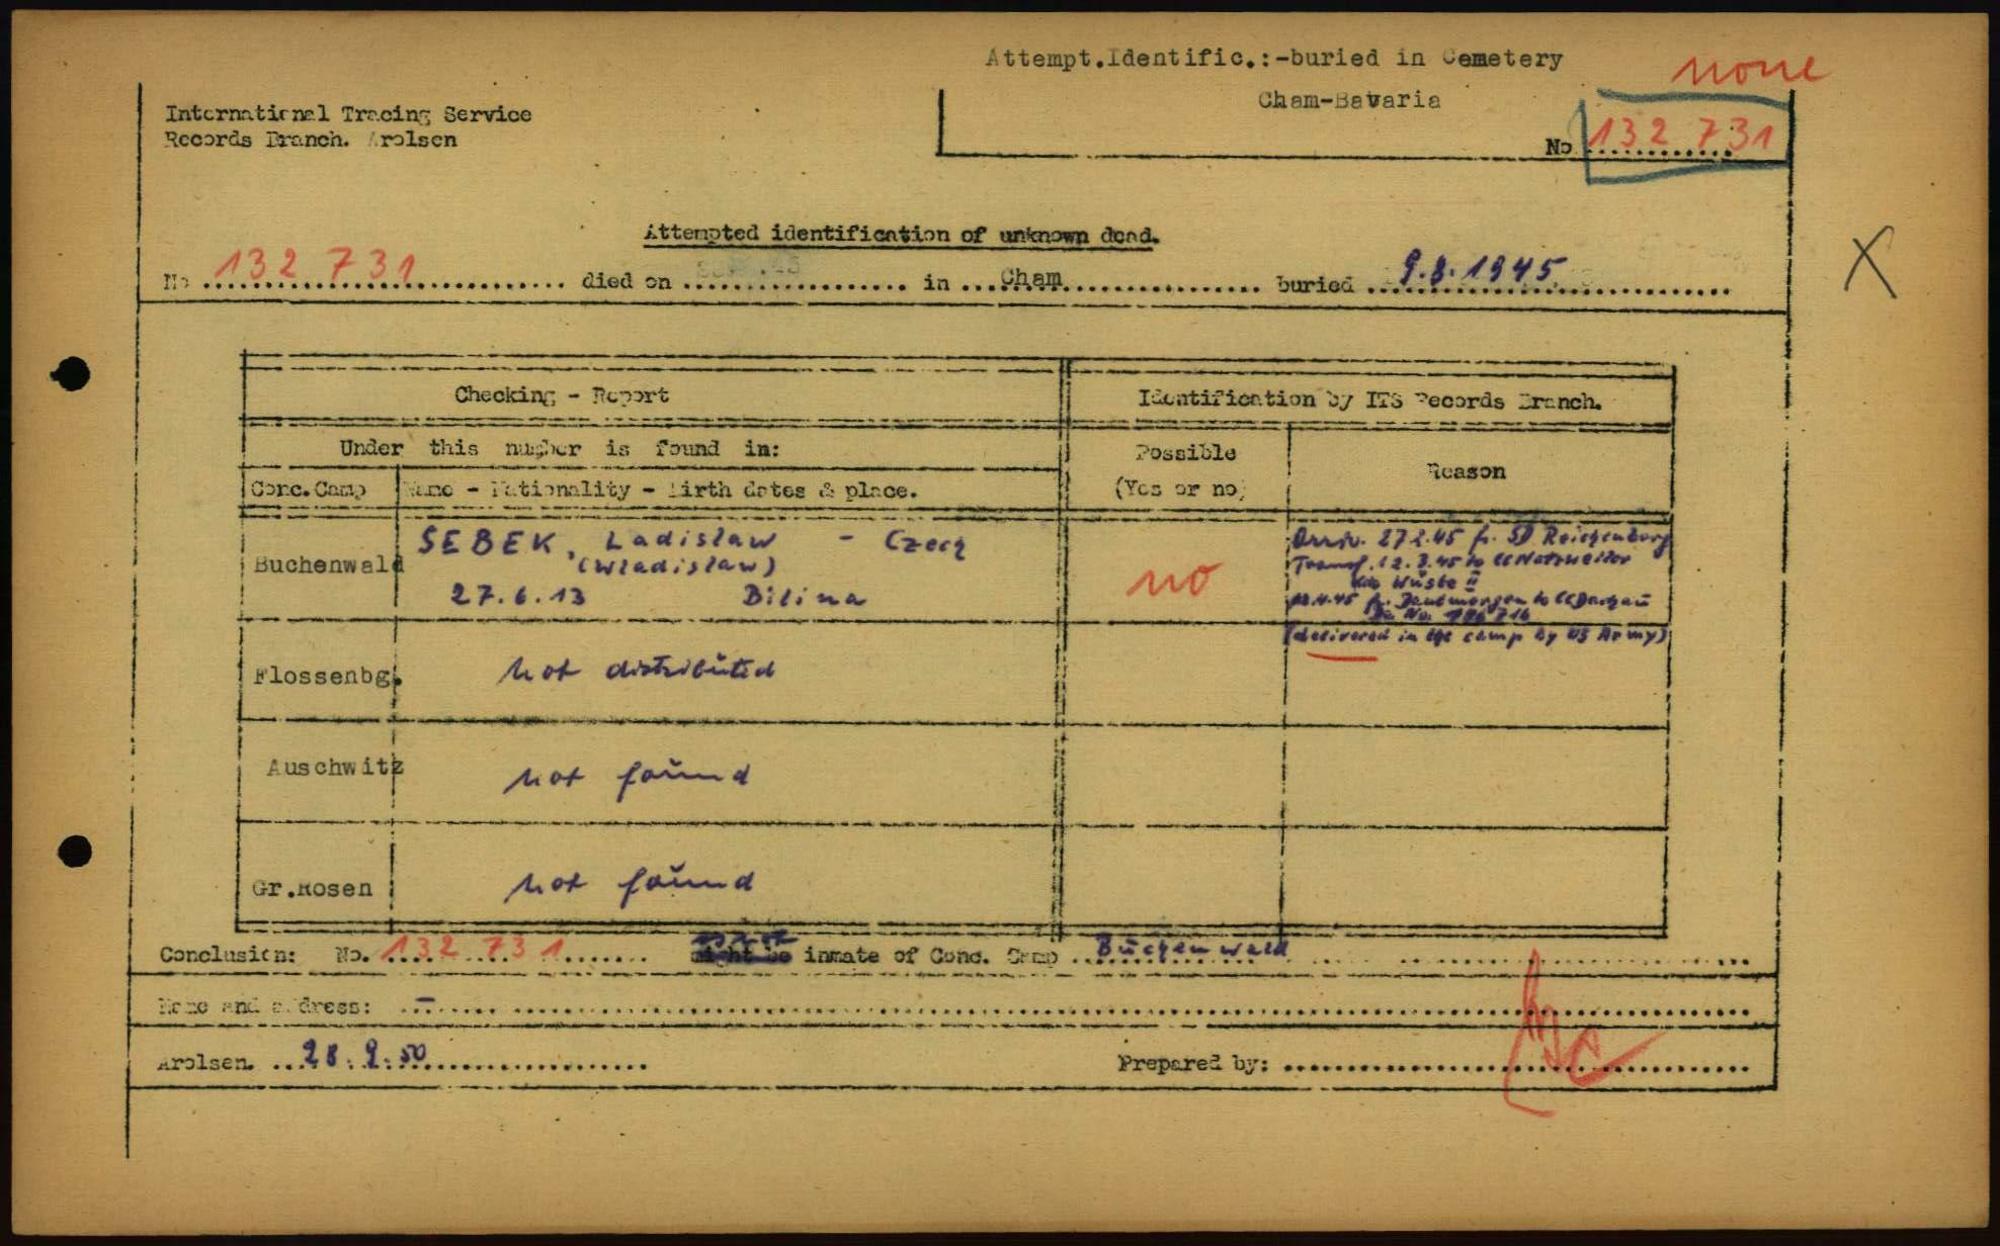 Attempt.Identific.:-buried in Cemetery
none
Cham-Bavaria
International Tracing Service
Records Branch. Arolsen
No 132 731
Attempted identification of unknown dead.
No 132 731 died on in Cham buried 9.8.1945
X
Checking - Report
Identification by ITS Records Branch.
Under this number is found in:
Possible
(Yes or no)
Reason
Conc.Camp
Name - Nationality - Birth dates & place.
Buchenwald
SEBEK, Ladislaw - Czech
(Wladislaw)
27.6.13 Bilina
no
Arriv. 27.2.45 fr. SD Reichenberg
Transf. 12.3.45 to CC Natzweiler
Kdo Wüste II
fr. Dautmergen to CC Dachau
Da No.
(delivered in the camp by US Army)
Flossenbg.
not distributed
Auschwitz
not found
Gr.Rosen
not found
Conclusion: No. 132 731 inmate of Conc. Camp Buchenwald
Name and address: –
Arolsen. 28.9.50
Prepared by: